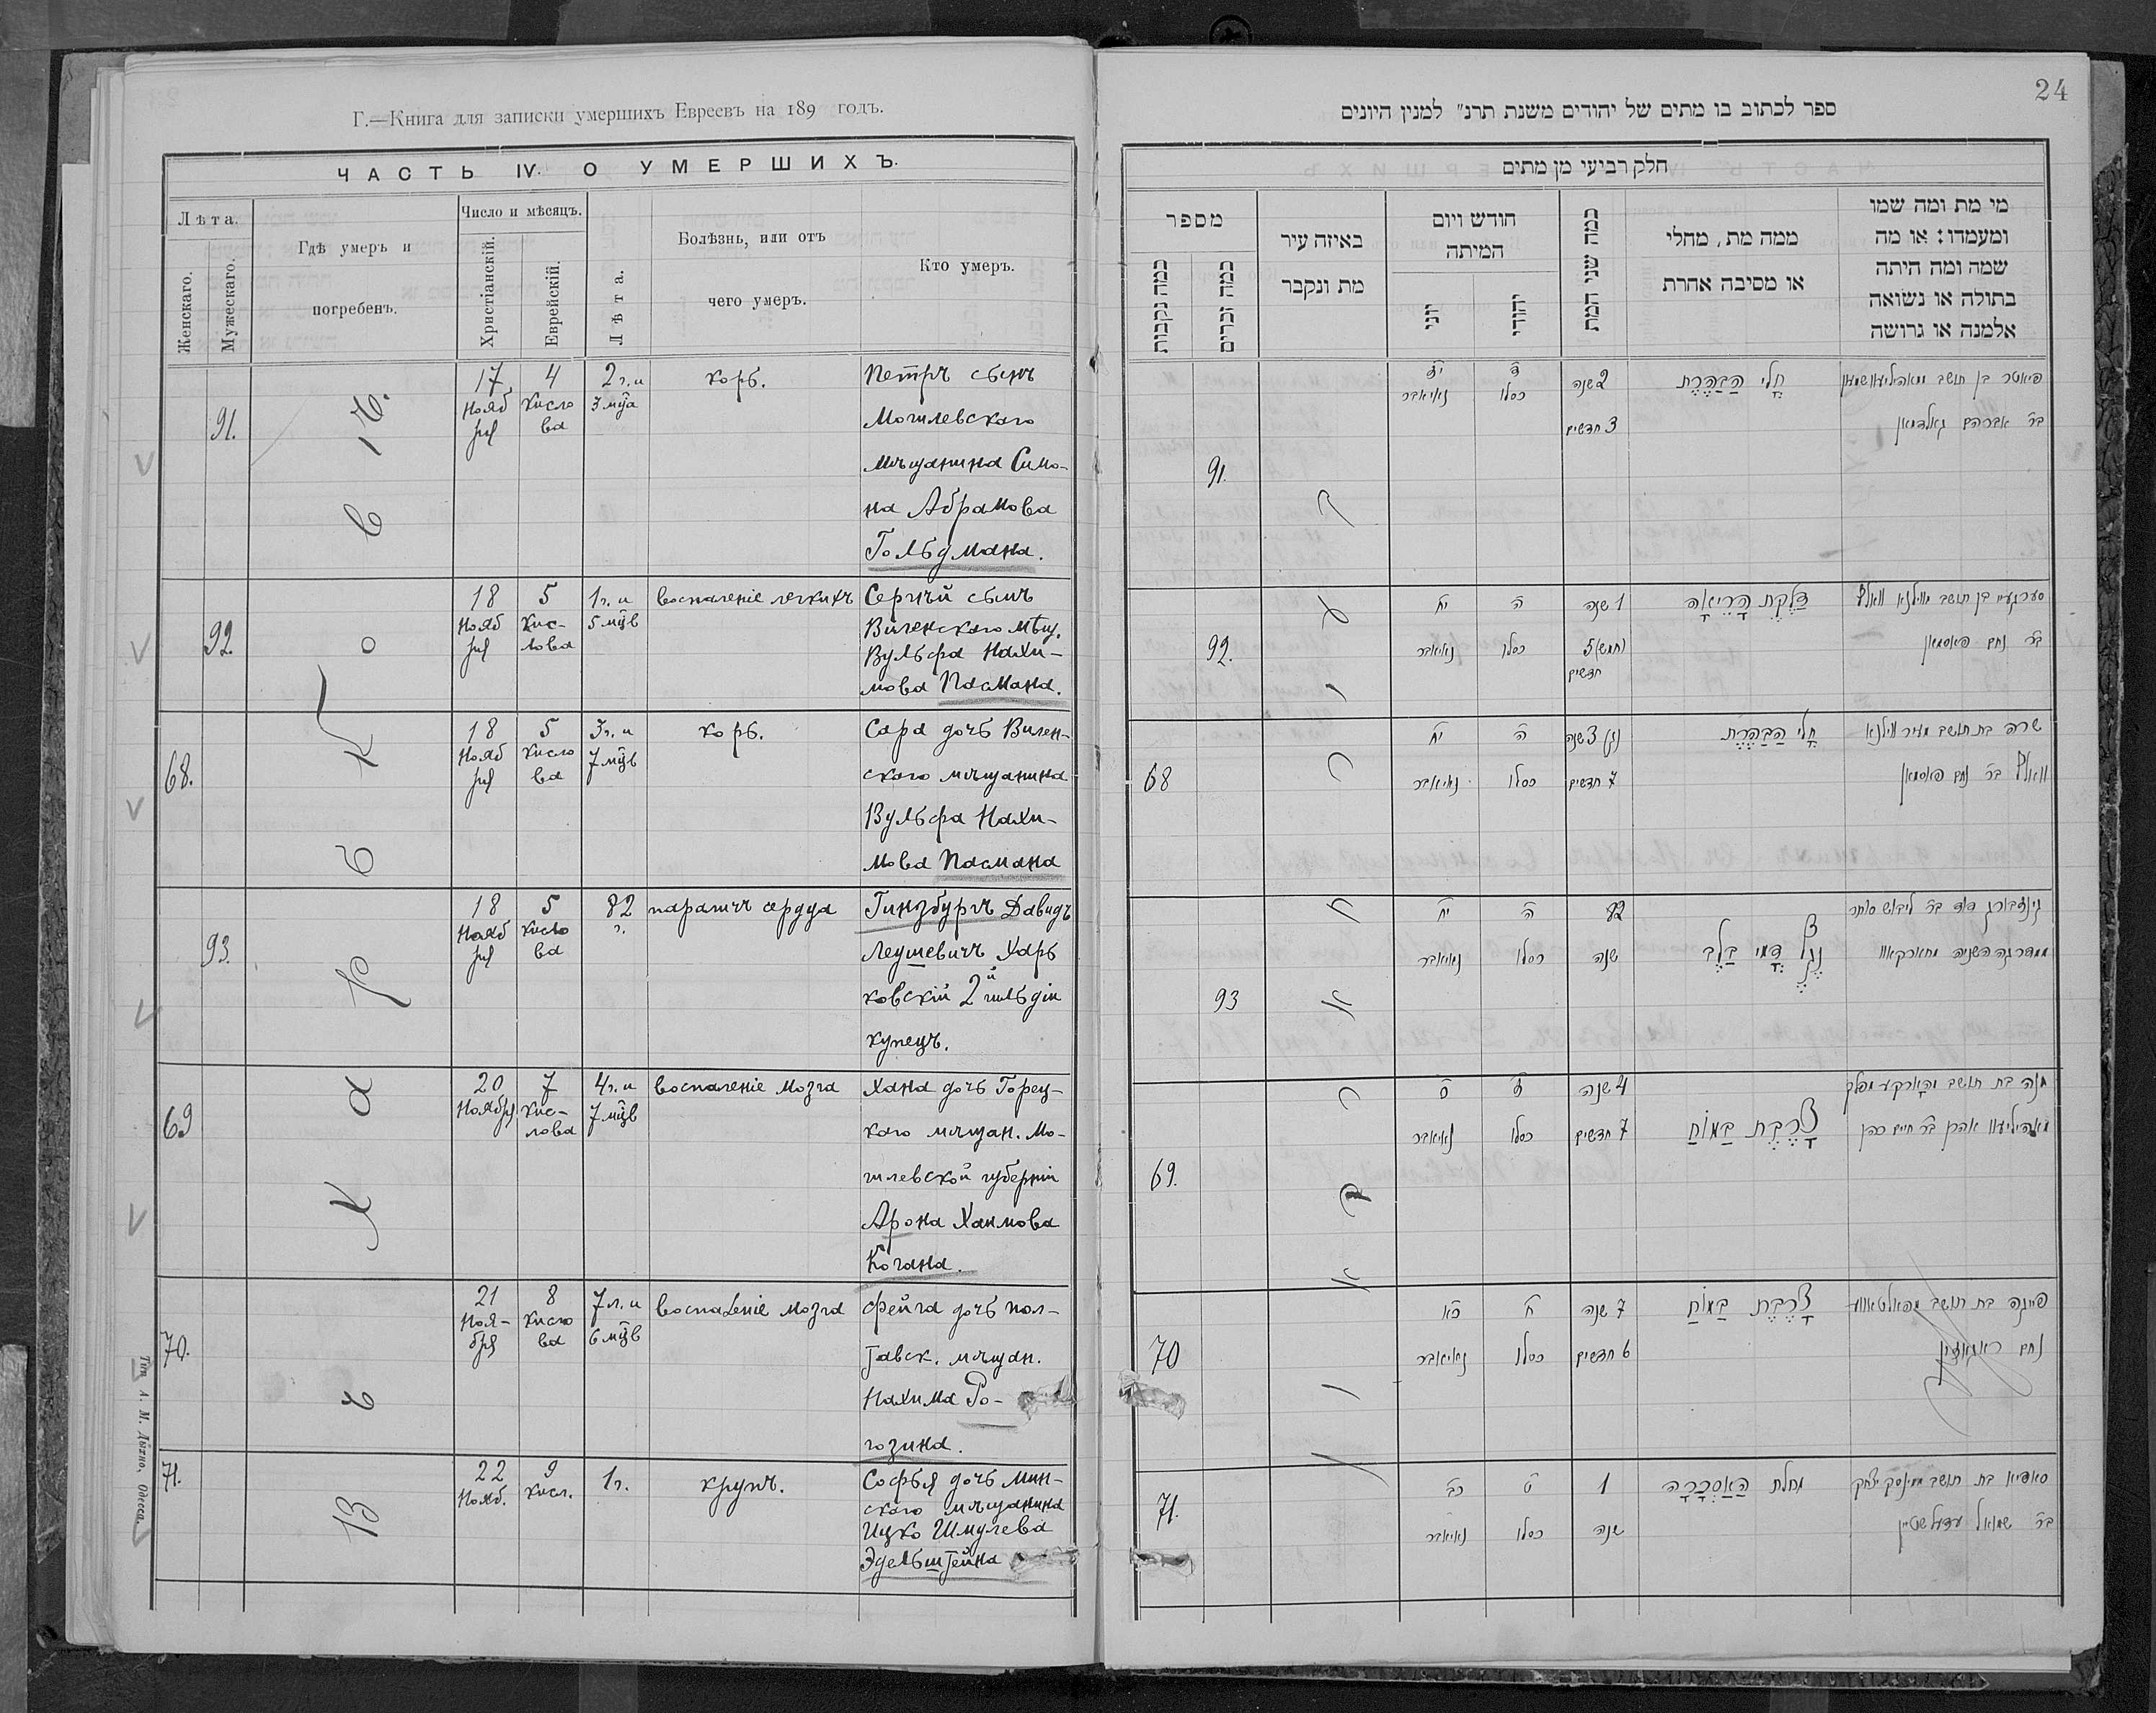 Г.—Книга для записки умершихъ Евреевъ на 189 годъ.
ЧАСТЬ IV. О УМЕРШИХЪ.
Лѣта.
Женскаго.
Мужескаго.
Гдѣ умеръ и
погребенъ.
Число и мѣсяцъ.
Христіанскій.
Еврейскій.
Лѣта.
Болѣзнь, или отъ
чего умеръ.
Кто умеръ.
В г. Харьковѣ
91.
17 Нояб
ря
4 Кисло
ва
2 г. и
3 мца
корь.
Петръ сынъ
Могилевскаго
мѣщанина Симо-
на Абрамова
Гольдмана.
92.
18 Нояб
ря
5 Кис-
лова
1 г. и
5 мцв
воспаленіе легкихъ
Сергѣй сынъ
Виленскаго мѣщ.
Вульфа Нахи-
мова Пасмана.
68.
18 Нояб
ря
5 Кисло
ва
3 г. и
7 мцв
корь.
Сара дочь Вилен-
скаго мѣщанина
Вульфа Нахи-
мова Пасмана
93.
18 Нояб
ря
5 Кисло
ва
82
г.
параличъ сердца
Гинзбургъ Давидъ
Леушевичъ Харь
ковскій 2й гильдіи
купецъ.
69
20
Ноября
7
Кис-
лова
4 г. и
7 мцв
воспаленіе мозга
Хана дочь Горец-
кого мѣщан. Мо-
гилевской губерніи
Арона Хаимова
Когана.
70.
21
Ноя-
бря
8
Кисло
ва
7 л. и
6 мцв
воспаленіе мозга
Фейга дочь Пол-
тавск. мѣщан.
Нахима Ро-
гозина.
71.
22
Нояб.
9
Кисл.
1 г.
крупъ.
Софья дочь Мин-
скаго мѣщанина
Ицко Шмулева
Эдельштейна
Тип. А. М. Дыхно, Одесса.
24
ספר לכתוב בו מתים של יהודים משנת תרנ״ למנין היונים
חלק רביעי מן מתים
מספר
כמה נקבות
כמה זכרים
באיזה עיר
מת ונקבר
חודש ויום
המיתה
יוני
יהודי
כמה שני המת
ממה מת, מחלי
או מסיבה אחרת
מי מת ומה שמו
ומעמדו: או מה
שמה ומה היתה
בתולה או נשואה
אלמנה או גרושה
91.
יז
נאיאבר
ד
כסלו
2 שנה
3 חדשים
חֳלִי הַבַהֶרֶת
פיאטר בן תושב מאהיליעוו שמעון
בר אברהם גאלדמאן
92.
יח
נאיאבר
ה
כסלו
1 שנה
(חמש) 5
חדשים
דַלֶקֶת הָרֵיאָה
סערגעי בן תושב ווילנא וואלף
בר נחם פאסמאן
68
יח
נאיאבר
ה
כסלו
3 שנה
7 חדשים
חֳלִי הַבַהֶרֶת
שרה בת תושב מעיר ווילנא
וואלף בר נחם פאסמאן
93
יח
נאיאבר
ה
כסלו
82
שנה
גינזבורג דוד בר ליבוש סוחר
ממדרגה השניה מחארקאוו
69.
כ
נאיאבר
ז
כסלו
4 שנה
7 חדשים
צָרֶבֶת בַמוֹחַ
מאהיליעוו אהרן בר חיים כהן
70
כא
נאיאבר
ח
כסלו
7 שנה
6 חדשים
צָרֶבֶת בַמוֹחַ
פייגה בת תושב מפאלטאווע
נחם ראגאזין
71.
כב
נאיאבר
ט
כסלו
1
שנה
מחלת הָאַסְכָרָה
סאפיא בת תושב מינסק יצחק
בר שמואל עדעלשטיין